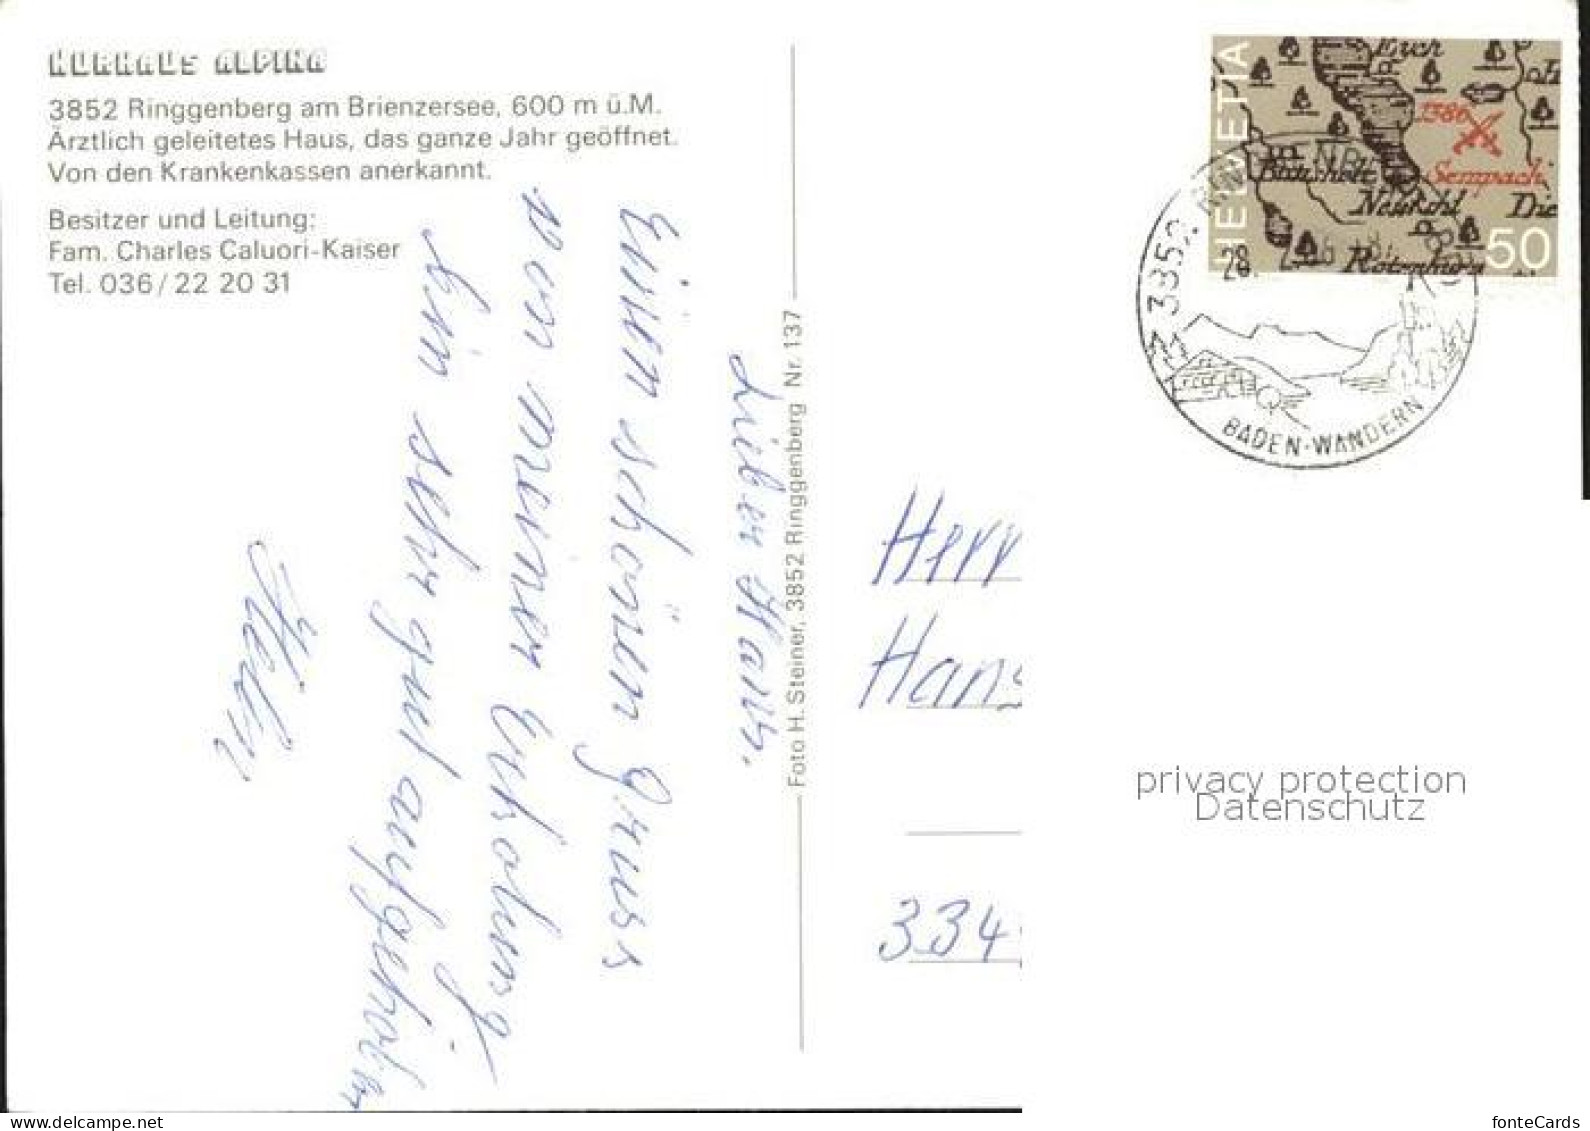 KURHAUS ALPINA
3852 Ringgenberg am Brienzersee, 600 m ü.M.
Ärztlich geleitetes Haus, das ganze Jahr geöffnet.
Von den Krankenkassen anerkannt.
Besitzer und Leitung:
Fam. Charles Caluori-Kaiser
Tel. 036/22 20 31
Lieber Hans.
Einen schönen Gruss
von meiner Erholung
bin sehr gut aufgehoben
Foto H. Steiner, 3852 Ringgenberg Nr. 137
HELVETIA
Eich
1386
Sempach
Neukchl
Die
50
3852
28.
BADEN-WANDERN
Herr
Hans
334
privacy protection
Datenschutz
www.delcampe.net
fonteCards